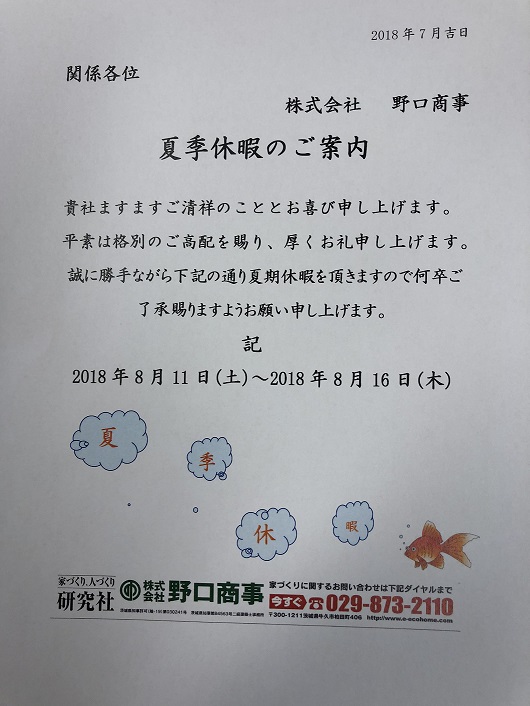 2018年7月吉日
関係各位
株式会社 野口商事
夏季休暇のご案内
貴社ますますご清祥のこととお喜び申し上げます。
平素は格別のご高配を賜り、厚くお礼申し上げます。
誠に勝手ながら下記の通り夏期休暇を頂きますので何卒ご
了承賜りますようお願い申し上げます。
記
2018年8月11日(土)～2018年8月16日(木)
夏
季
休
暇
家づくり、人づくり
研究社
株式会社 野口商事
家づくりに関するお問い合わせは下記ダイヤルまで
今すぐ 029-873-2110
〒300-1211茨城県牛久市柏田町406 http://www.e-ecohome.com